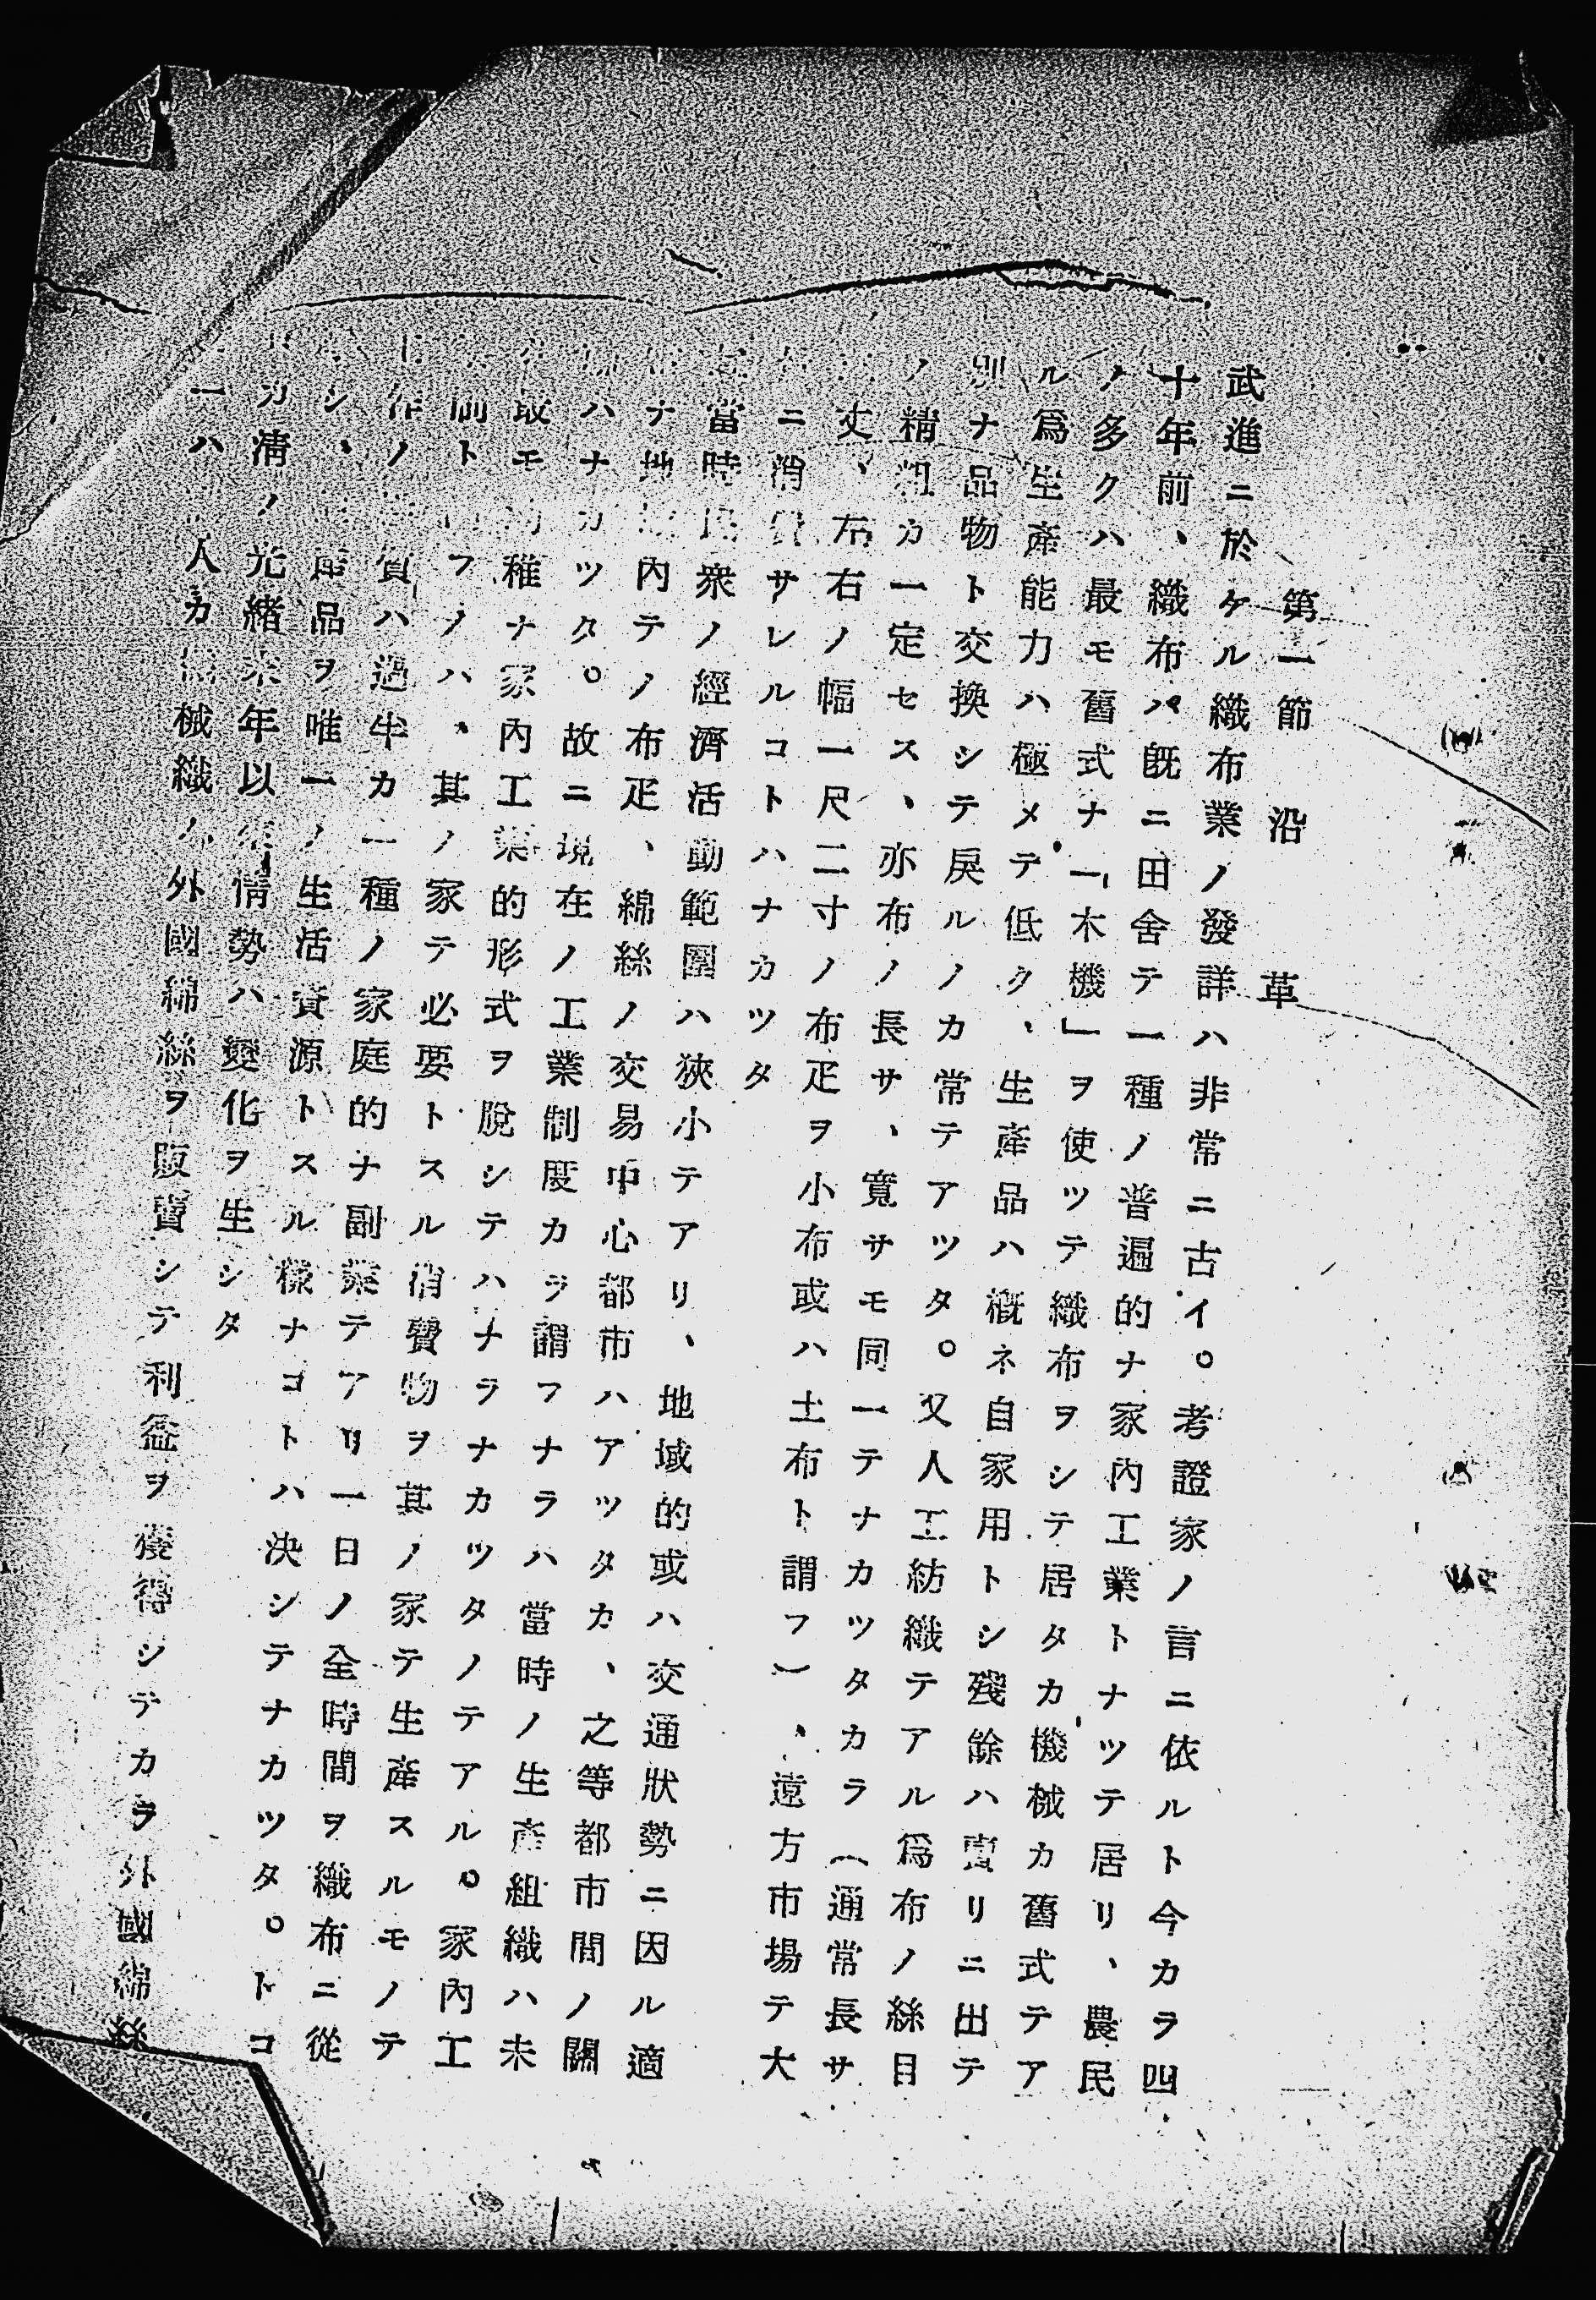 第一節　沿　革
武進ニ於ケル織布業ノ發詳ハ非常ニ古イ。考證家ノ言ニ依ルト今カラ四
十年前、織布パ旣ニ田舍テ一種ノ普遍的ナ家內工業トナツテ居リ、農民
ノ多クハ最モ舊式ナ「木機」ヲ使ツテ織布ヲシテ居タカ機械カ舊式テア
ル爲生產能力ハ極メテ低ク、生產品ハ槪ネ自家用トシ殘餘ハ賣リニ出テ
別ナ品物ト交換シテ戾ルノカ常テアツタ。又人工紡織テアル爲布ノ絲目
ノ精粗カ一定セス、亦布ノ長サ、寬サモ同一テナカツタカラ（通常長サ
丈、布右ノ幅一尺二寸ノ布疋ヲ小布或ハ土布ト謂フ）、遠方市場テ大
ニ消費サレルコトハナカツタ
當時民衆ノ經濟活動範圍ハ狹小テアリ、地域的或ハ交通狀勢ニ因ル適
ナ地內テノ布疋、綿絲ノ交易中心都市ハアツタカ、之等都市間ノ關
ハナカツタ。故ニ現在ノ工業制度カラ謂フナラハ當時ノ生產組織ハ未
取モ稚ナ家內工業的形式ヲ脫シテハナラナカツタノテアル。家內工
前トフノハ、其ノ家テ必要トスル消費物ヲ其ノ家テ生產スルモノテ
作ノ質ハ過半カ一種ノ家庭的ナ副業テアリ一日ノ全時間ヲ織布ニ從
シ、產品ヲ唯一ノ生活資源トスル樣ナコトハ決シテナカツタ。トコ
カ淸ノ光緖末年以來情勢ハ變化ヲ生シタ
一ハ人カ械織ハ外國綿絲ヲ販賣シテ利益ヲ獲得シテカラ外國綿絲